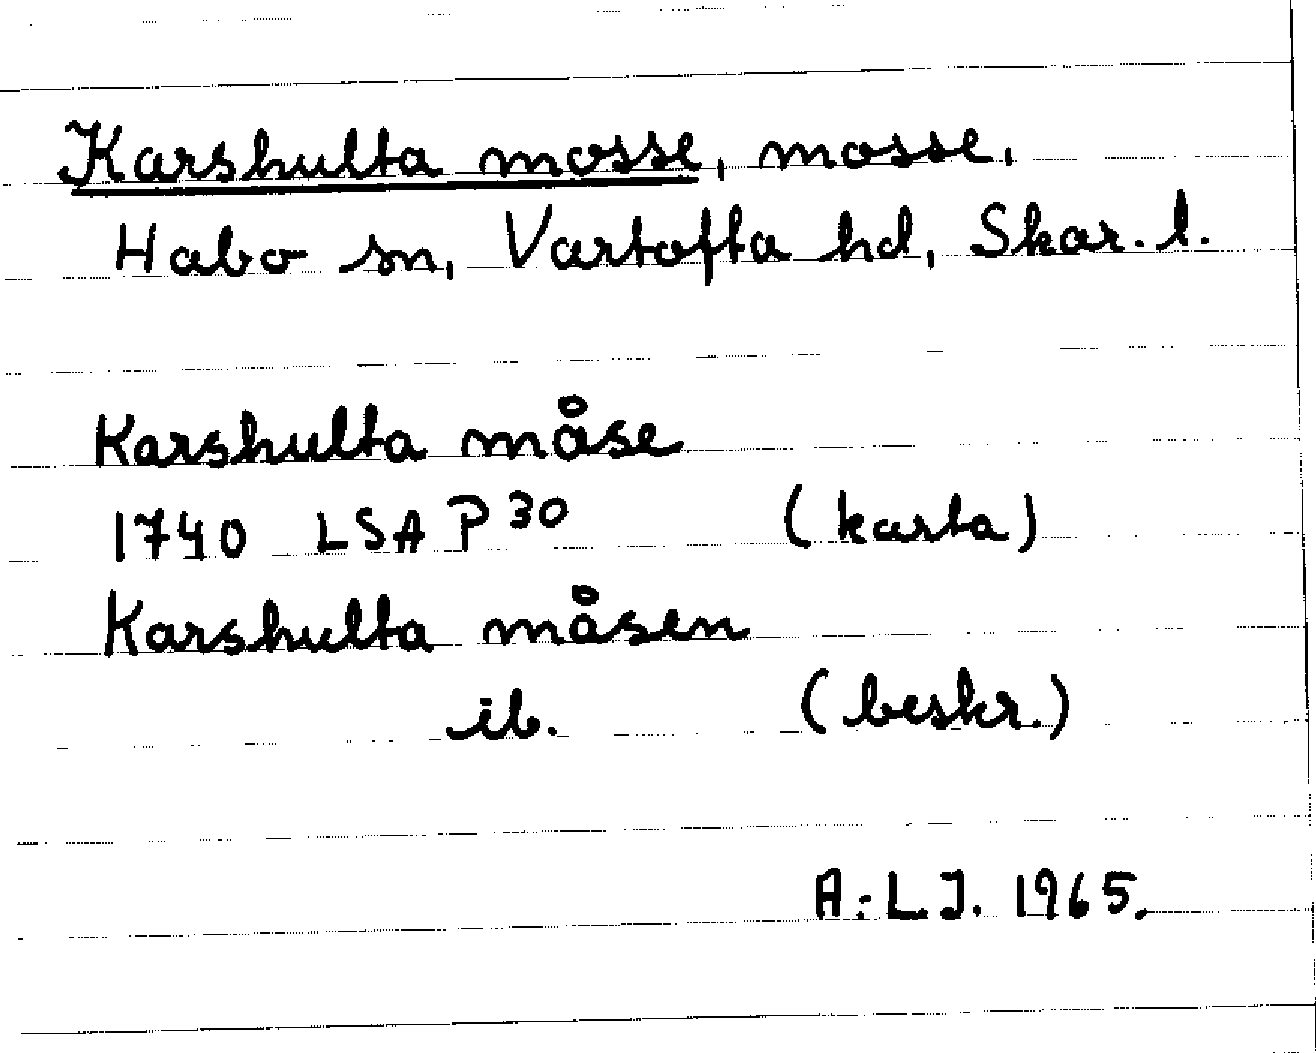 Karshulta mosse, mosse,
Habo sn, Vartofta hd, Skar. l.
Karshulta måse
1740 LSA P 30 (karta)
Karshulta måsen
ib. (beskr.)
A-L.J. 1965.